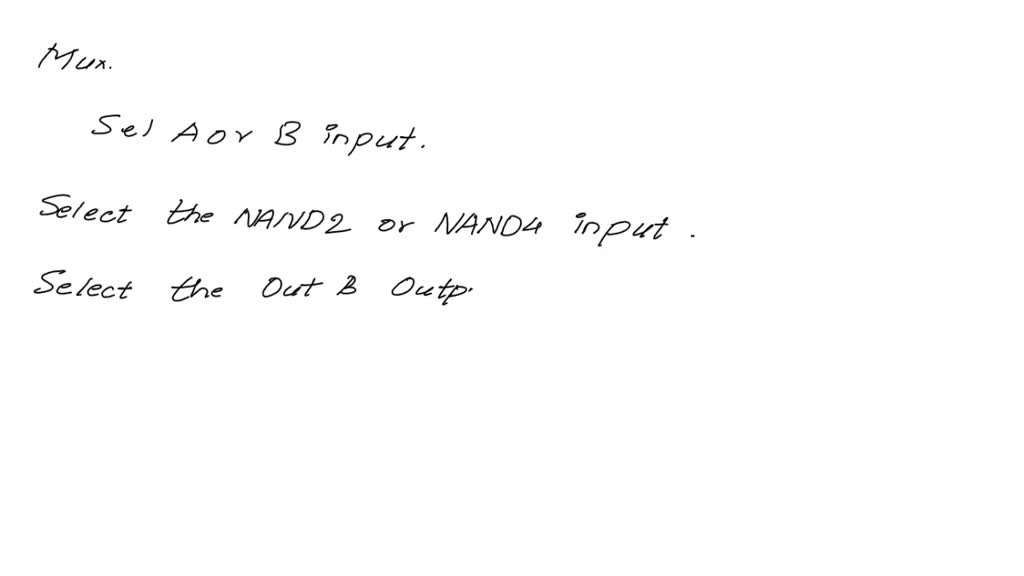 Mux.
Sel A or B input.
Select the NAND2 or NAND4 input.
Select the Out B Outp.